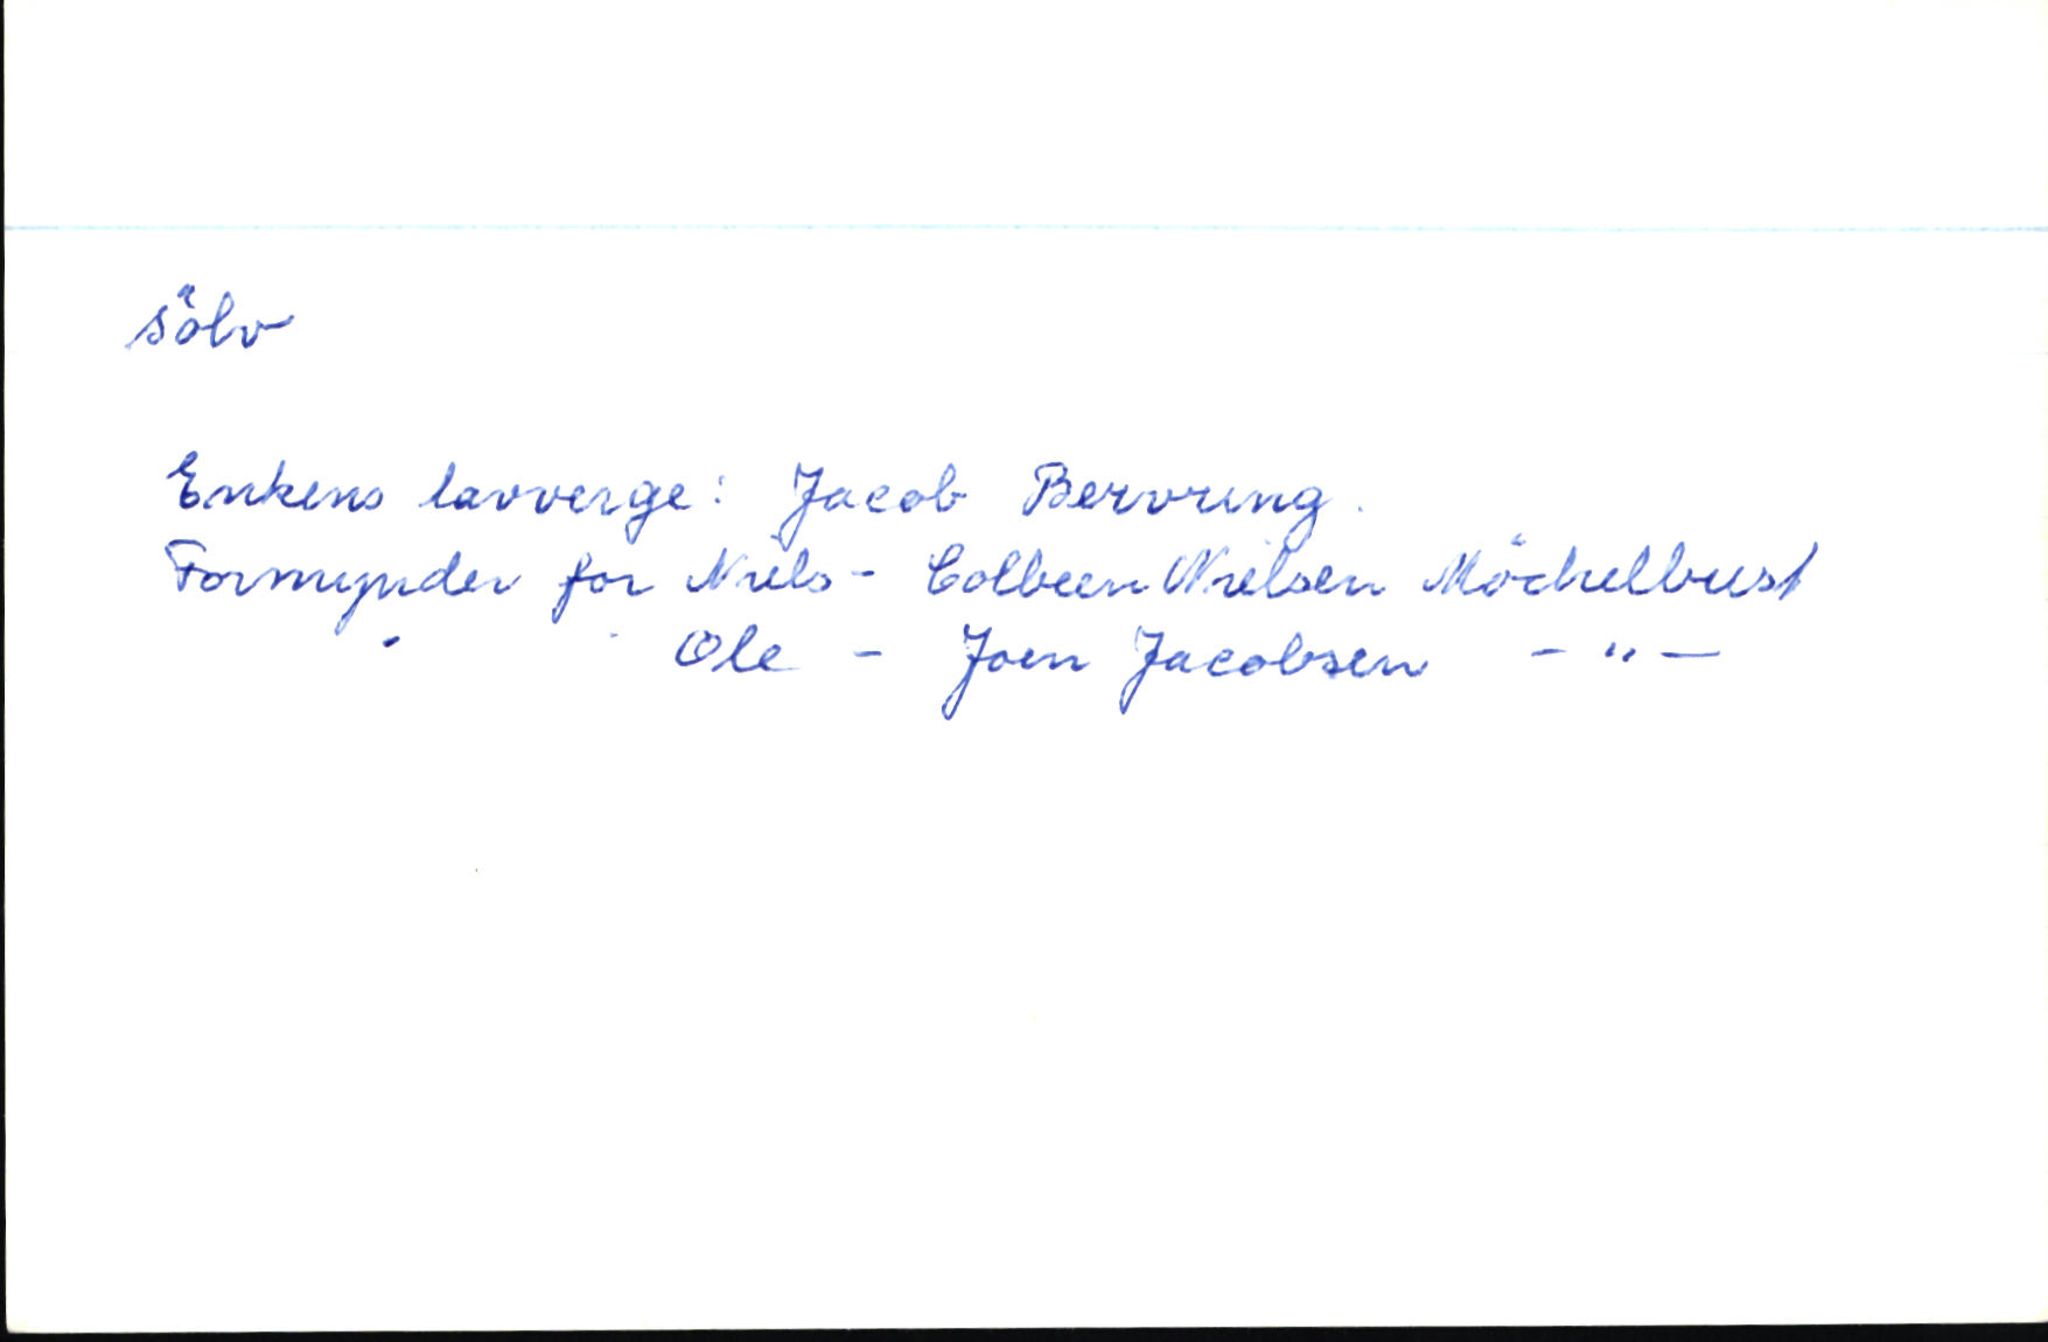 sölv
Enkens lavverge: Jacob Bervung.
Formynder for Niels - Colbeen Nielsen Möchelbust
" " Ole - Joen Jacobsen - " -